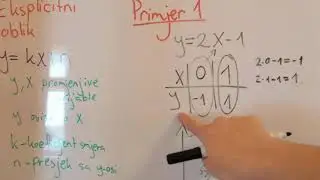 Eksplicitni
oblik
y = kx
y, x promjenive
y ovisi o x
k - koeficijent smjera
n - Presjek sa y-osi
Primjer 1
y = 2x - 1
x | 0 | 1
y | -1 | 1
2·0-1 = -1
2·1-1 = 1